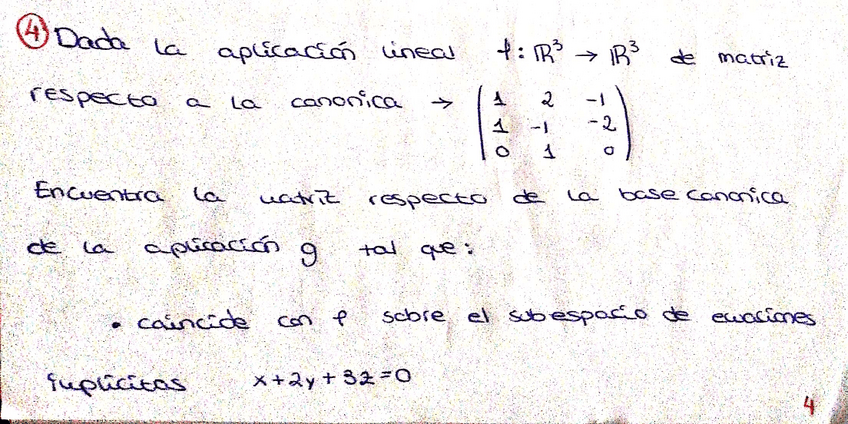 ④ Dada la aplicación lineal f: ℝ³ → ℝ³ de matriz
respecto a la canonica → (1 2 -1
1 -1 -2
0 1 0)
Encuentra la matriz respecto de la base canonica
de la aplicación g tal que:
• coincide con f sobre el subespacio de ecuaciones
implícitas x+2y+3z=0
4